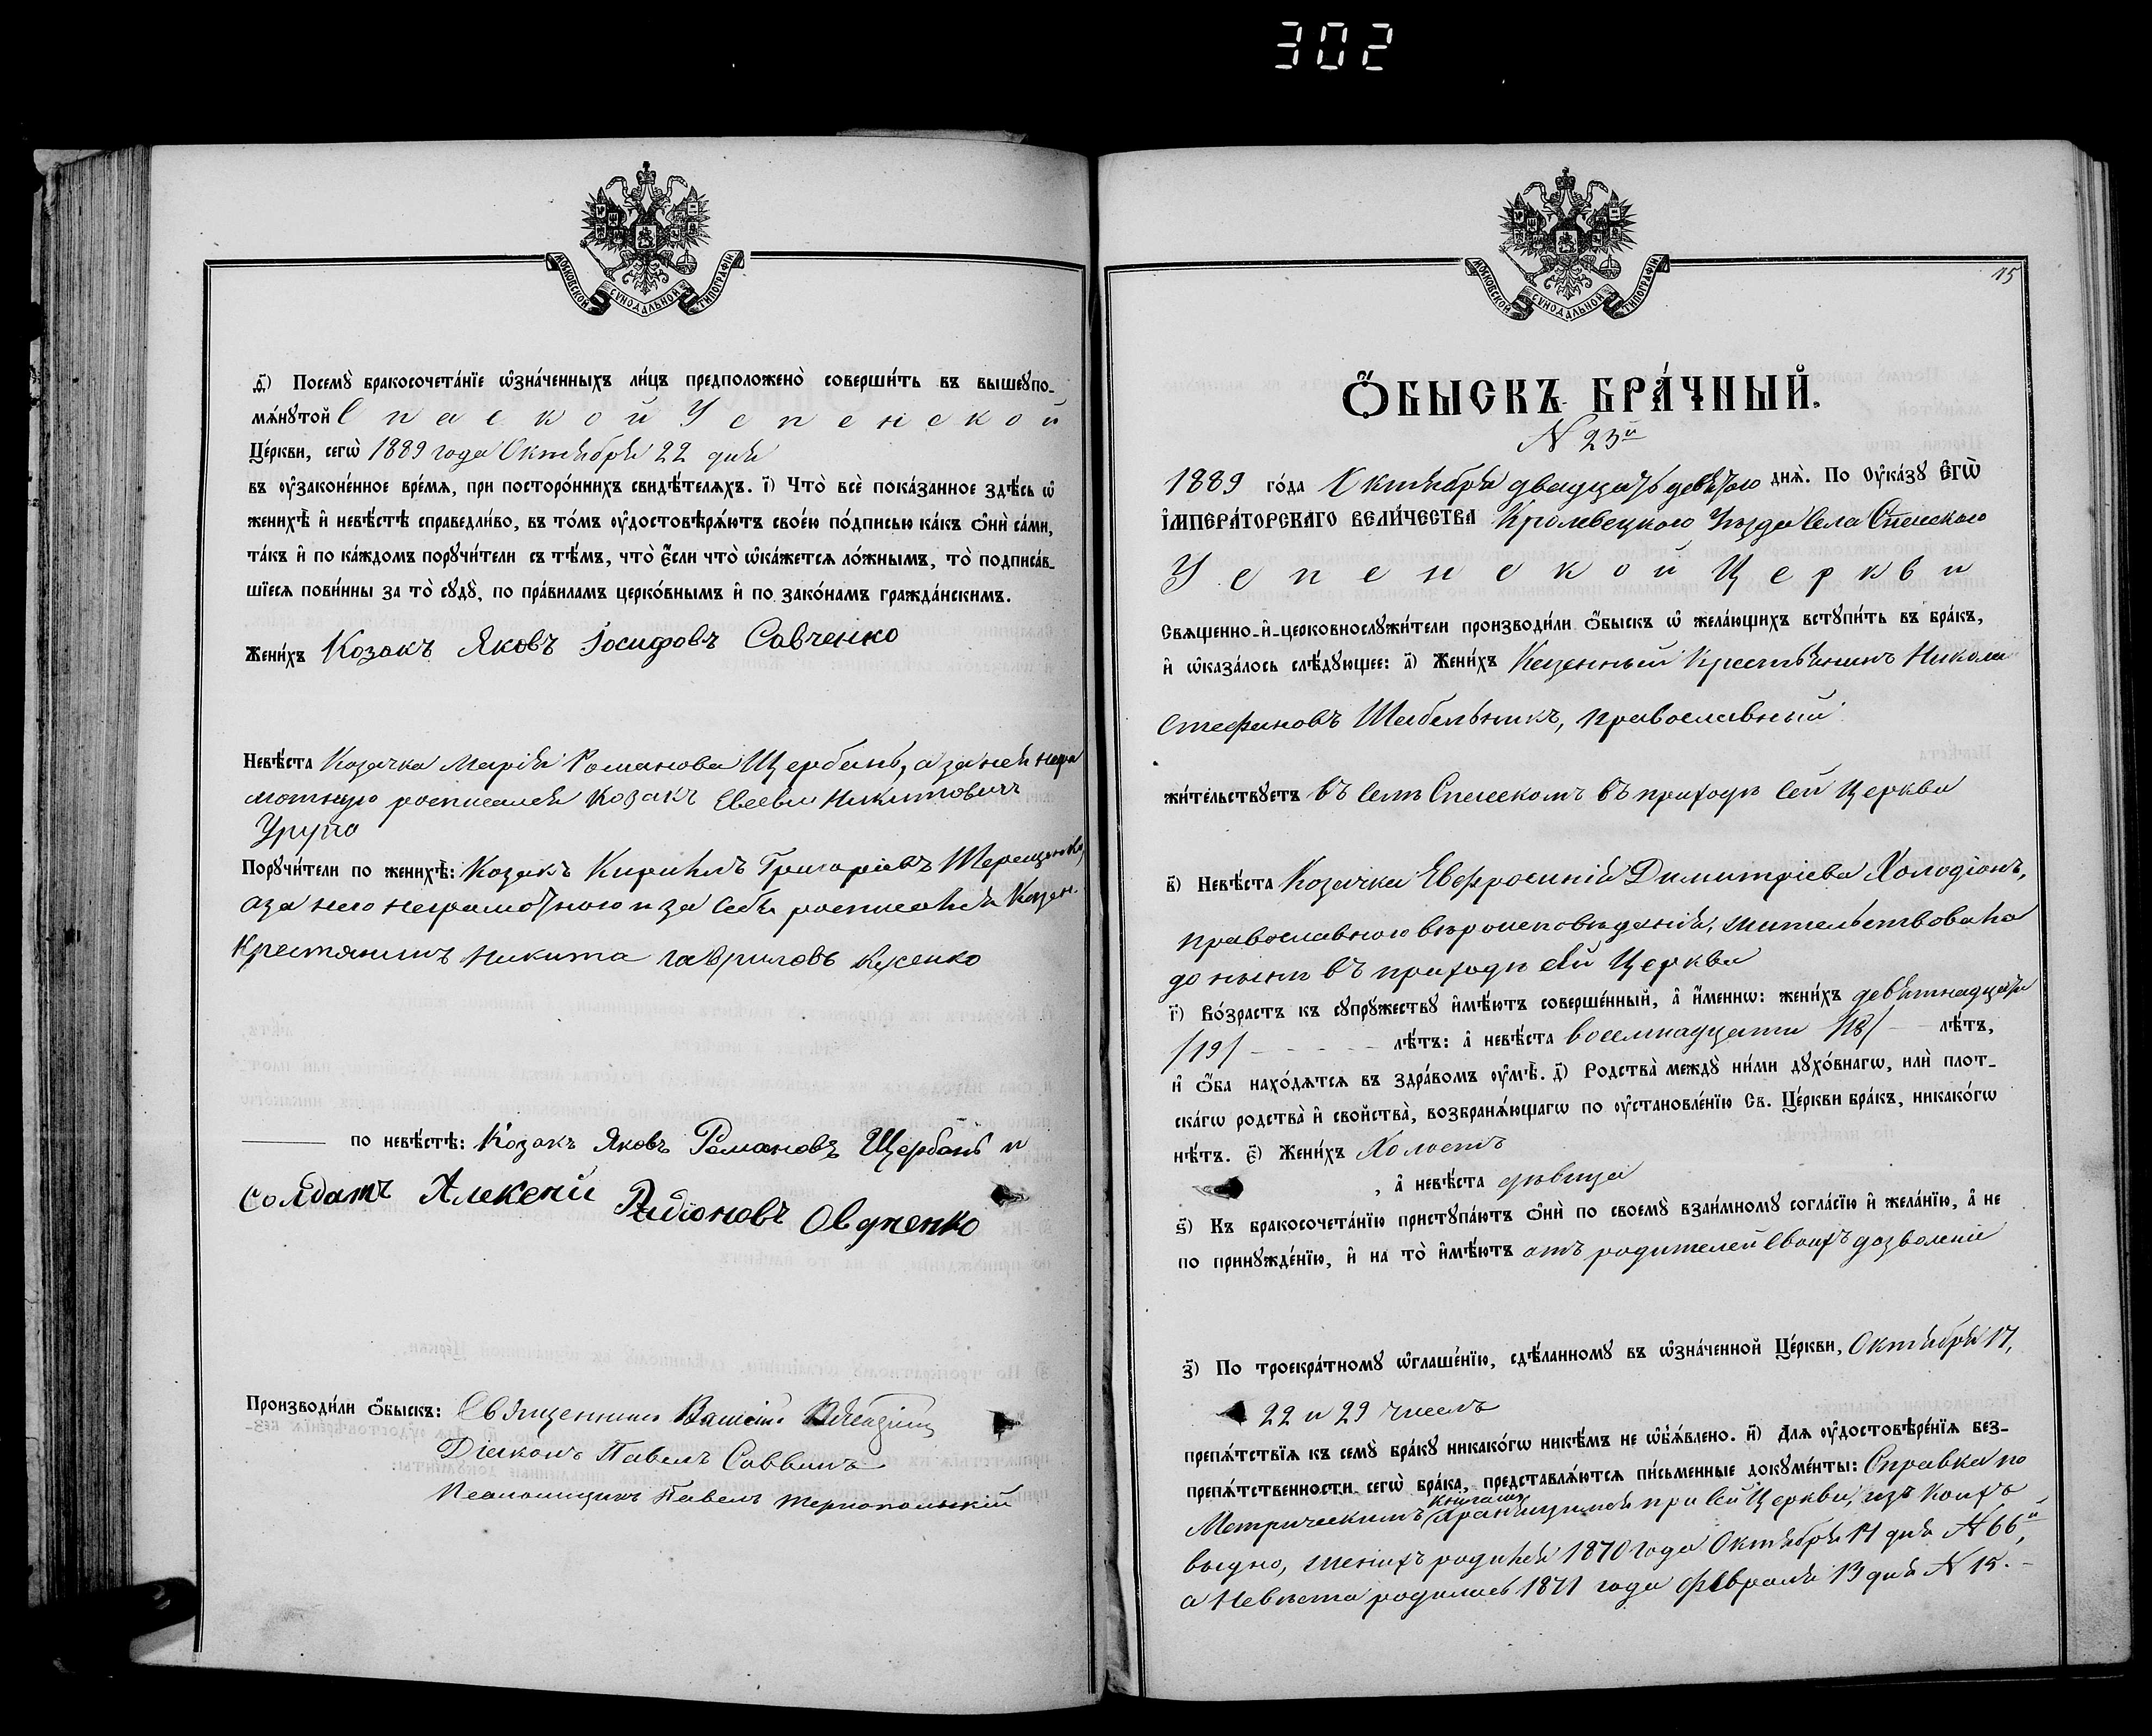 302
МОСКОВСКОЙ СѴНОДАЛЬНОЙ ТИПОГРАФІИ.
д҃) Посемꙋ̀ бракосочета́нїе ѡ҆зна́ченныхъ ли́цъ предположено̀ соверши́ть въ вышеꙋпо-
мѧ́нꙋтой Спаской Успенской
Це́ркви, сегѡ̀ 1889 года Октября 22 дня
въ ᲂу҆зако́ненное вре́мѧ, при посторо́ннихъ свидѣ́телѧхъ. і҃) Что̀ всѐ пока́занное здѣ́сь ѡ҆
женихѣ̀ и҆ невѣ́стѣ справедли́во, въ то́мъ ᲂу҆достовѣрѧ́ютъ свое́ю по́дписью ка́къ ѻ҆нѝ са́ми,
та́къ и҆ по ка́ждомъ порꙋчи́тели съ тѣ́мъ, что̀ є҆́сли что̀ ѡ҆ка́жетсѧ ло́жнымъ, то̀ подписа́в-
шїесѧ пови́нны за то̀ сꙋдꙋ̀, по пра́виламъ церко́внымъ и҆ по зако́намъ гражда́нскимъ.
Жени́хъ Козакъ Яковъ Іосифовъ Савченко
Невѣ́ста Козачка Марія Романова Щербань, а за ней негра
мотную росписался Козакъ Евсевій Никитовичъ
Порꙋчи́тели по женихѣ̀: Козакъ Кирилъ Григоріевъ Терещенко,
а за него неграмотного и за себя росписался Казен.
Крестянинъ Никита Гавриловъ
по невѣ́стѣ: Козакъ Яковъ Романовъ Щербань и
Солдатъ Алексей Радіоновъ Овдіенко
Производи́ли ѻ҆́быскъ: Священникъ Василій
Діяконъ Павелъ Саввинъ
Псаломщикъ Павелъ Тернопольскій
МОСКОВСКОЙ СѴНОДАЛЬНОЙ ТИПОГРАФІИ.
15
Ѻ҆́БЫСКЪ БРА́ЧНЫЙ.
N 23й
1889 го́да Октября двадцать девятого днѧ̀. По Оу҆ка́зꙋ Є҆гѡ̀
І҆мпера́торскагѡ Вели́чества Кролевецкого Уѣзда Села Спаского
Успенской Церкви
Свѧщенно-и҆-церковнослꙋжи́тели производи́ли ѻ҆́быскъ ѡ҆ жела́ющихъ встꙋпи́ть въ бра́къ,
и҆ ѡ҆каза́лось слѣ́дꙋющее: а҃) Жени́хъ Казенный Крестьянинъ Николай
Стефановъ Шабельникъ, православный
жи́тельствꙋетъ въ селѣ Спасскомъ въ приходѣ сей Церкви
в҃) Невѣ́ста Козачка Евфросинія Димитріева Холодіонъ,
православного вѣроисповѣданія, жительствовала
до нынѣ въ приходѣ сей Церкви
г҃) Во́зрастъ къ сꙋпрꙋ́жествꙋ и҆мѣ́ютъ соверше́нный, а҆ и҆́меннѡ: жени́хъ девятнадцати
/19/ лѣ́тъ: а҆ невѣ́ста восемнадцати /18/ лѣ́тъ,
и҆ ѻ҆́ба нахо́дѧтсѧ въ здра́вомъ ᲂу҆мѣ̀. д҃) Родства̀ междꙋ̀ ни́ми дꙋхо́внагѡ, илѝ плот-
ска́гѡ родства̀ и҆ свойства̀, возбранѧ́ющагѡ по ᲂу҆становле́нїю Св. Це́ркви бра́къ, никако́гѡ
нѣ́тъ. є҃) Жени́хъ Холостъ
, а҆ невѣ́ста дѣвица
ѕ҃) Къ бракосочета́нїю пристꙋпа́ютъ ѻ҆нѝ по своемꙋ̀ взаи́мномꙋ согла́сїю и҆ жела́нїю, а҆ не
по принꙋжде́нїю, и҆ на то̀ и҆мѣ́ютъ отъ родителей своихъ дозволеніе
з҃) По троекра́тномꙋ ѡ҆глаше́нїю, сдѣ́ланномꙋ въ ѡ҆зна́ченной Це́ркви, Октября 17,
22 и 29 чиселъ
препѧ́тствїѧ къ семꙋ̀ бра́кꙋ никако́гѡ никѣ́мъ не ѡ҆б̾ѧ́влено. и҃) Длѧ ᲂу҆достовѣре́нїѧ без-
препѧ́тственности сегѡ̀ бра́ка, представлѧ́ютсѧ пи́сьменные докꙋме́нты: Справка по
Метрическимъ книгамъ хранящимся при сей Церкви, изъ коихъ
видно, женихъ родился 1870 года Октября 17 дня N 66й,
а невѣста родилась 1871 года Февраля 13 дня N 15.